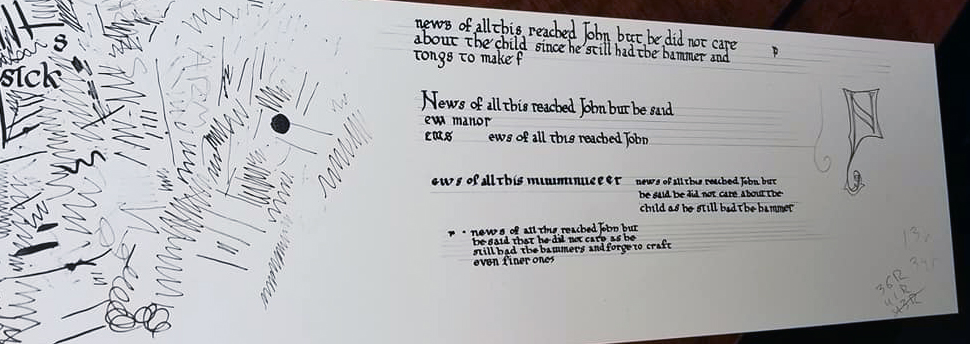 s
sick
news of all this reached John but he did not care
about the child since he still had the hammer and
tongs to make f
p
News of all this reached John but he said
ew manor
ews ews of all this reached John
ews of all this
news of all this reached John but
he said he did not care about the
child as he still had the hammer
news of all this reached John but
he said that he did not care as he
still had the hammers and forge to craft
even finer ones
36R
41R
43R